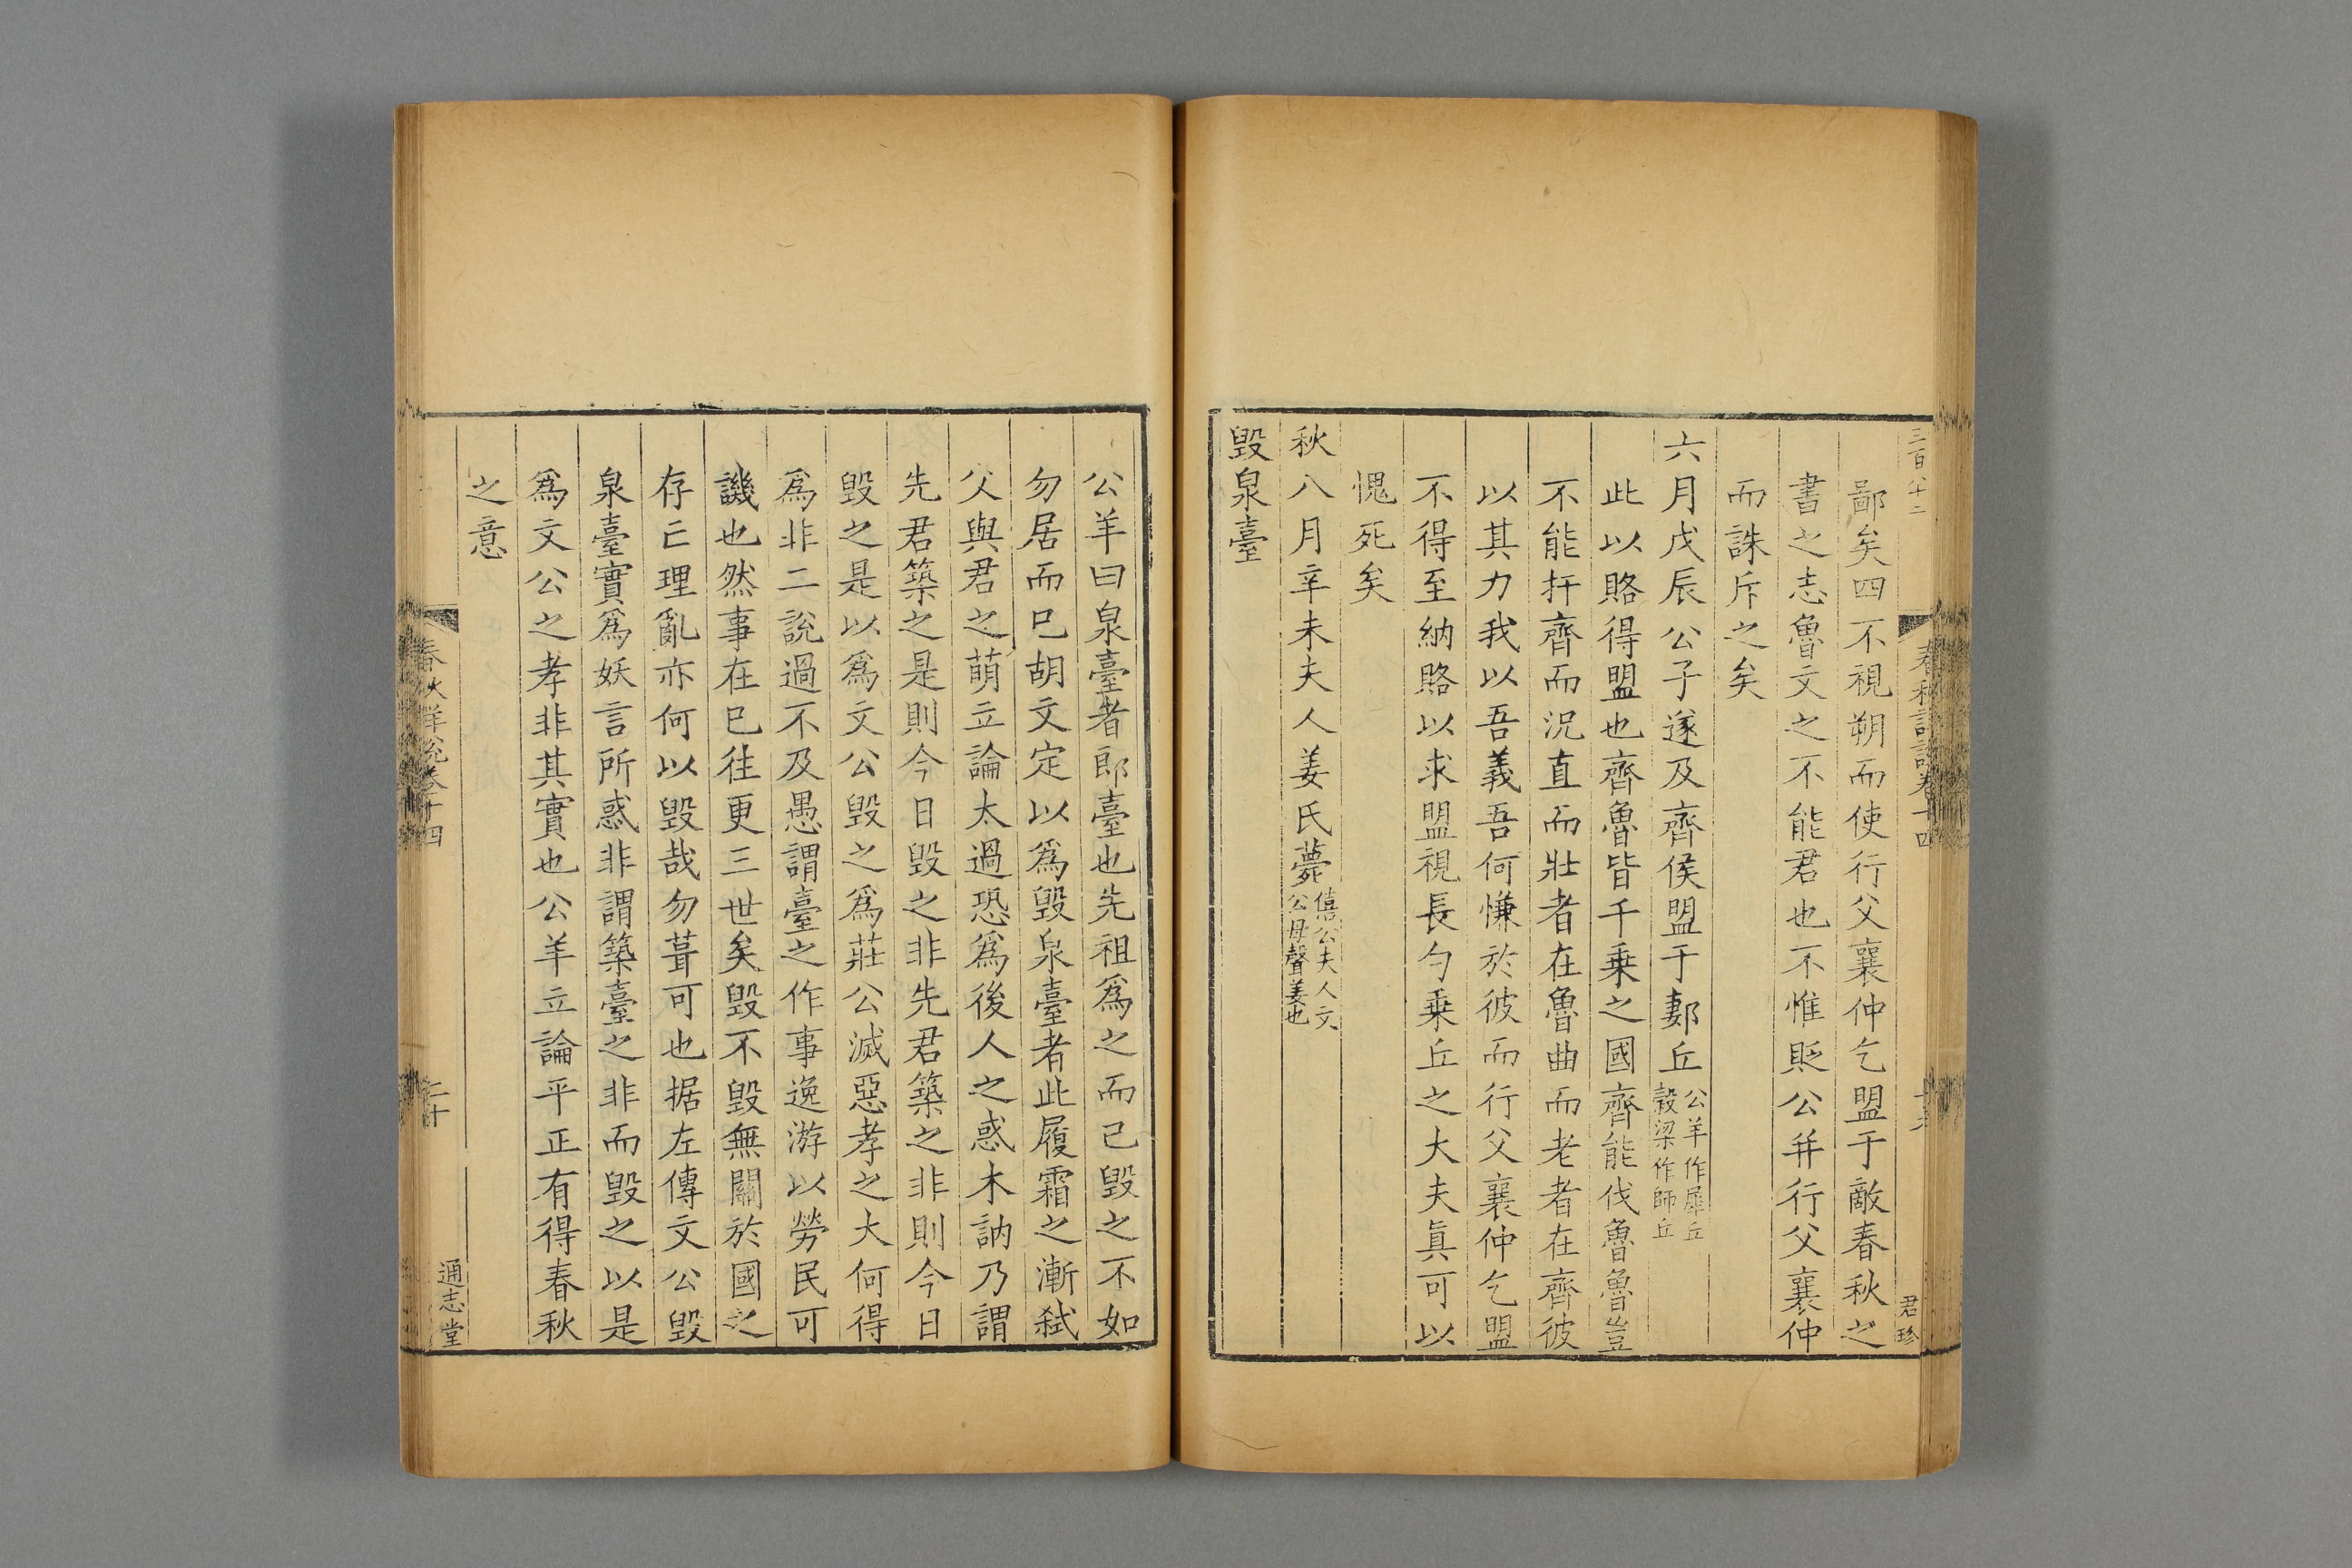 三百八十二
春秋詳說卷十四
君珍
鄙矣四不視朔而使行父襄仲乞盟于敵春秋之
書之志魯文之不能君也不惟貶公幷行父襄仲
而誅斥之矣
六月戊辰公子遂及齊侯盟于郪丘公羊作犀丘
穀梁作師丘
此以賂得盟也齊魯皆千乗之國齊能伐魯魯豈
不能扞齊而況直而壯者在魯曲而老者在齊彼
以其力我以吾義吾何慊於彼而行父襄仲乞盟
不得至納賂以求盟視長勺乗丘之大夫眞可以
愧死矣
秋八月辛未夫人姜氏薨僖公夫人文
公母聲姜也
毀泉臺
公羊曰泉臺者郎臺也先祖爲之而已毀之不如
勿居而已胡文定以爲毀泉臺者此履霜之漸弑
父與君之萌立論太過恐爲後人之惑木訥乃謂
先君築之是則今日毀之非先君築之非則今日
毀之是以爲文公毀之爲莊公滅惡孝之大何得
爲非二說過不及愚謂臺之作事逸游以勞民可
譏也然事在已往更三世矣毀不毀無關於國之
存亡理亂亦何以毀哉勿葺可也据左傳文公毀
泉臺實爲妖言所惑非謂築臺之非而毀之以是
爲文公之孝非其實也公羊立論平正有得春秋
之意
春秋詳說卷十四
二十
通志堂